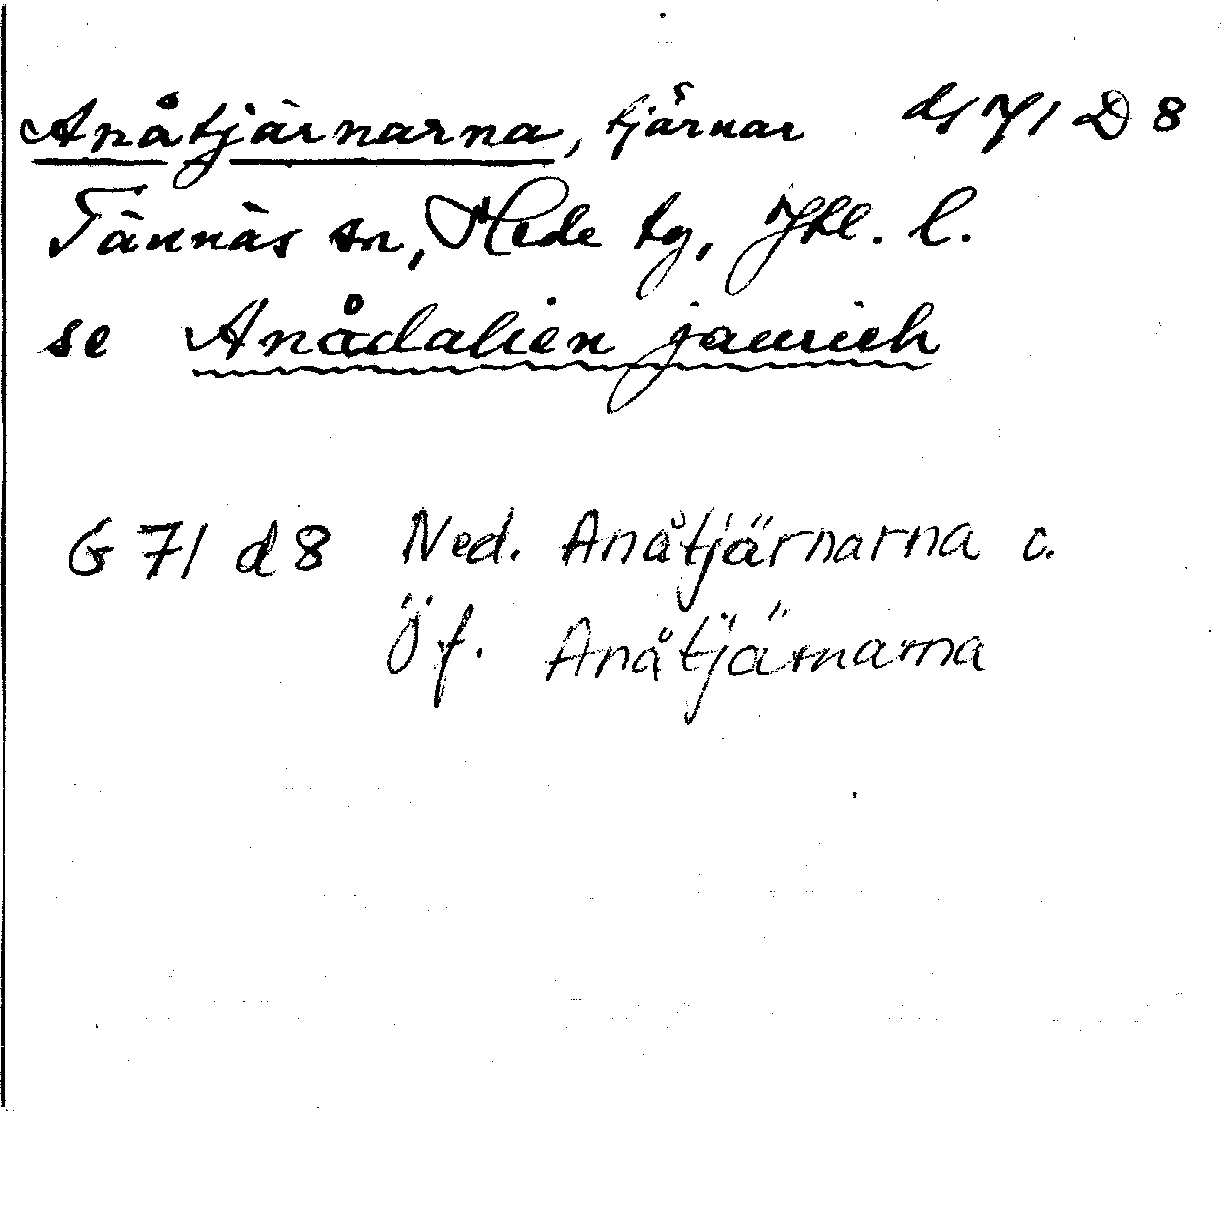 Anåtjärnarna, tjärnar ds 71 D 8
Tännäs sn, Hede tg, Jtl. l.
se Anådalien jaurieh
G 71 d 8 Ned. Anåtjärnarna o.
Öf. Anåtjärnarna